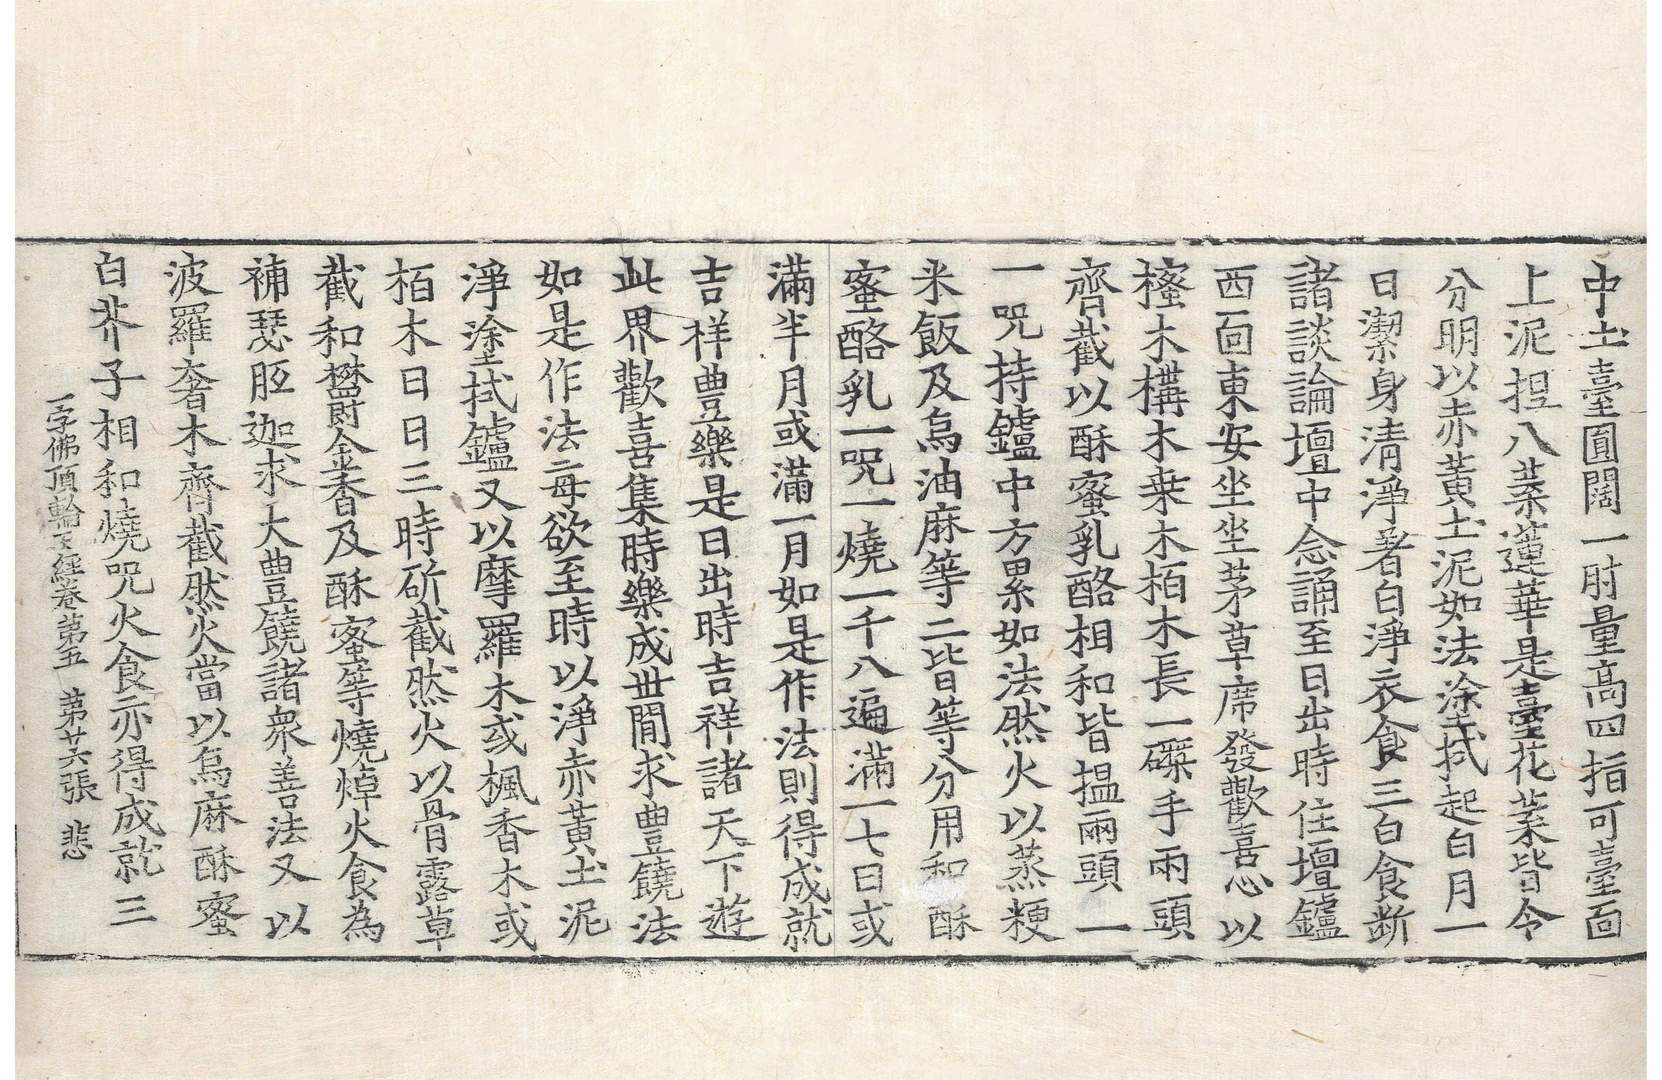 中土臺圓闊一肘量高四指可臺面
上泥捏八葉蓮華是臺花葉皆令
分明以赤黃土泥如法塗拭起白月一
日潔身清淨著白淨衣食三白食断
諸談論壇中念誦至日出時住壇鑪
西面東安坐坐茅草席發歡喜心以
樒木構木桒木栢木長一磔手兩頭
齊截以酥蜜乳酪相和皆搵兩頭一
一呪持鑪中方累如法然火以蒸粳
米飯及烏油麻等二皆等分用和酥
蜜酪乳一呪一燒一千八遍滿一七日或
滿半月或滿一月如是作法則得成就
吉祥豊樂是日出時吉祥諸天下遊
此界歡喜集時樂成世間求豊饒法
如是作法每欲至時以淨赤黃土泥
淨塗拭鑪又以摩羅木或楓香木或
栢木日日三時斫截然火以骨露草
截和欝金香及酥蜜等燒焯火食為
補瑟胵迦求大豊饒諸衆善法又以
波羅奢木齊截然火當以烏麻酥蜜
白芥子相和燒呪火食亦得成就三
一字佛頂輪王經卷第五 第廿六張 悲